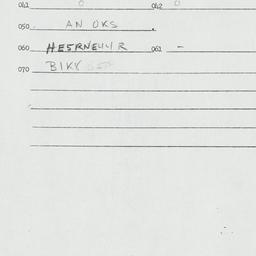 041 0 042 0
050 AN OKS
060 061 -
070 BIKY